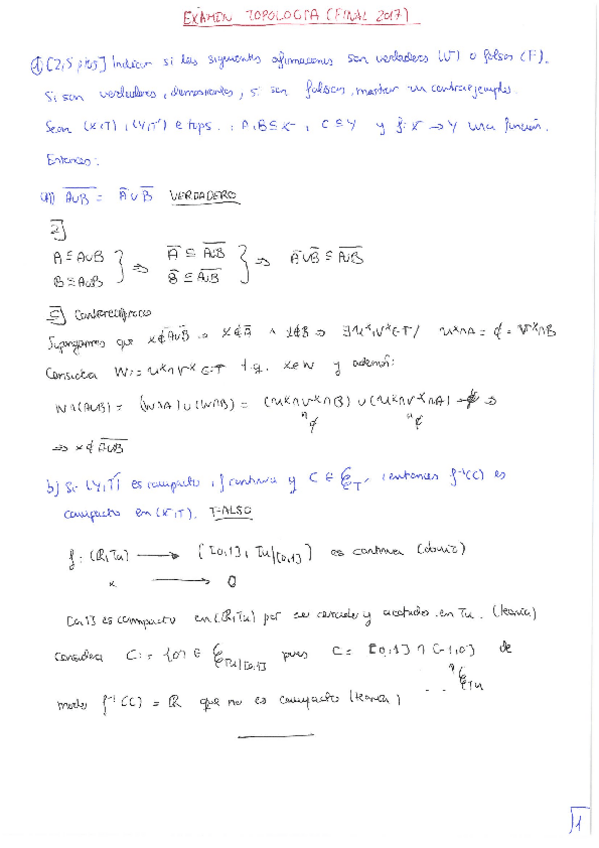 EXÁMEN TOPOLOGÍA (FINAL 2017)
① [2,5 ptos] Indicar si las siguientes afirmaciones son verdaderas (V) o falsas (F).
Si son verdaderas, demostrarlas, si son falsas, mostrar un contraejemplo.
Sean (X,T), (Y,T') e.tops., A,B⊆X, C⊆Y y f: X → Y una función.
Entonces:
a) \overline{A∪B} = \overline{A}∪\overline{B} VERDADERO
⊇]
A⊆A∪B
B⊆A∪B } ⇒ \overline{A} ⊆ \overline{A∪B}
\overline{B} ⊆ \overline{A∪B} } ⇒ \overline{A}∪\overline{B} ⊆ \overline{A∪B}
⊆] Contrarrecíproco
Supongamos que x∉\overline{A}∪\overline{B} ⇒ x∉\overline{A} ∧ x∉\overline{B} ⇒ ∃U^x,V^x∈T / U^x∩A = ∅ = V^x∩B
Considera W:= U^x∩V^x ∈T t.q. x∈W y además:
W∩(A∪B) = (W∩A)∪(W∩B) = (U^x∩V^x∩B) ∪ (U^x∩V^x∩A) = ∅ ⇒
⇒ x∉\overline{A∪B}
b) Si (Y,T') es compacto, f continua y C∈𝒞_{T'}, entonces f⁻¹(C) es
compacto en (X,T). FALSO
f: (ℝ,Tu) → ([0,1], Tu|[0,1]) es continua (obvio)
x → 0
[0,1] es compacto en (ℝ,Tu) por ser cerrado y acotado en Tu. (teoría)
considera C:= {0} ∈ 𝒞_{Tu|[0,1]} pues C = [0,1] ∩ [-1,0] de
∈ 𝒞_{Tu}
modo f⁻¹(C) = ℝ que no es compacto (teoría)
1